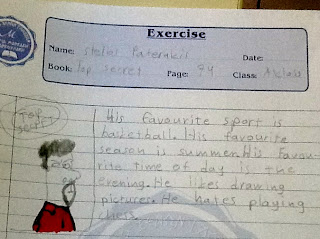 Exercise
Name: Date:
Book: Top secret Page: 94 Class: A class
TOP
SECRET
His favourite sport is
basketball. His favourite
season is summer. His favou-
rite time of day is the
evening. He likes drawing
pictures. He hates playing
chess.